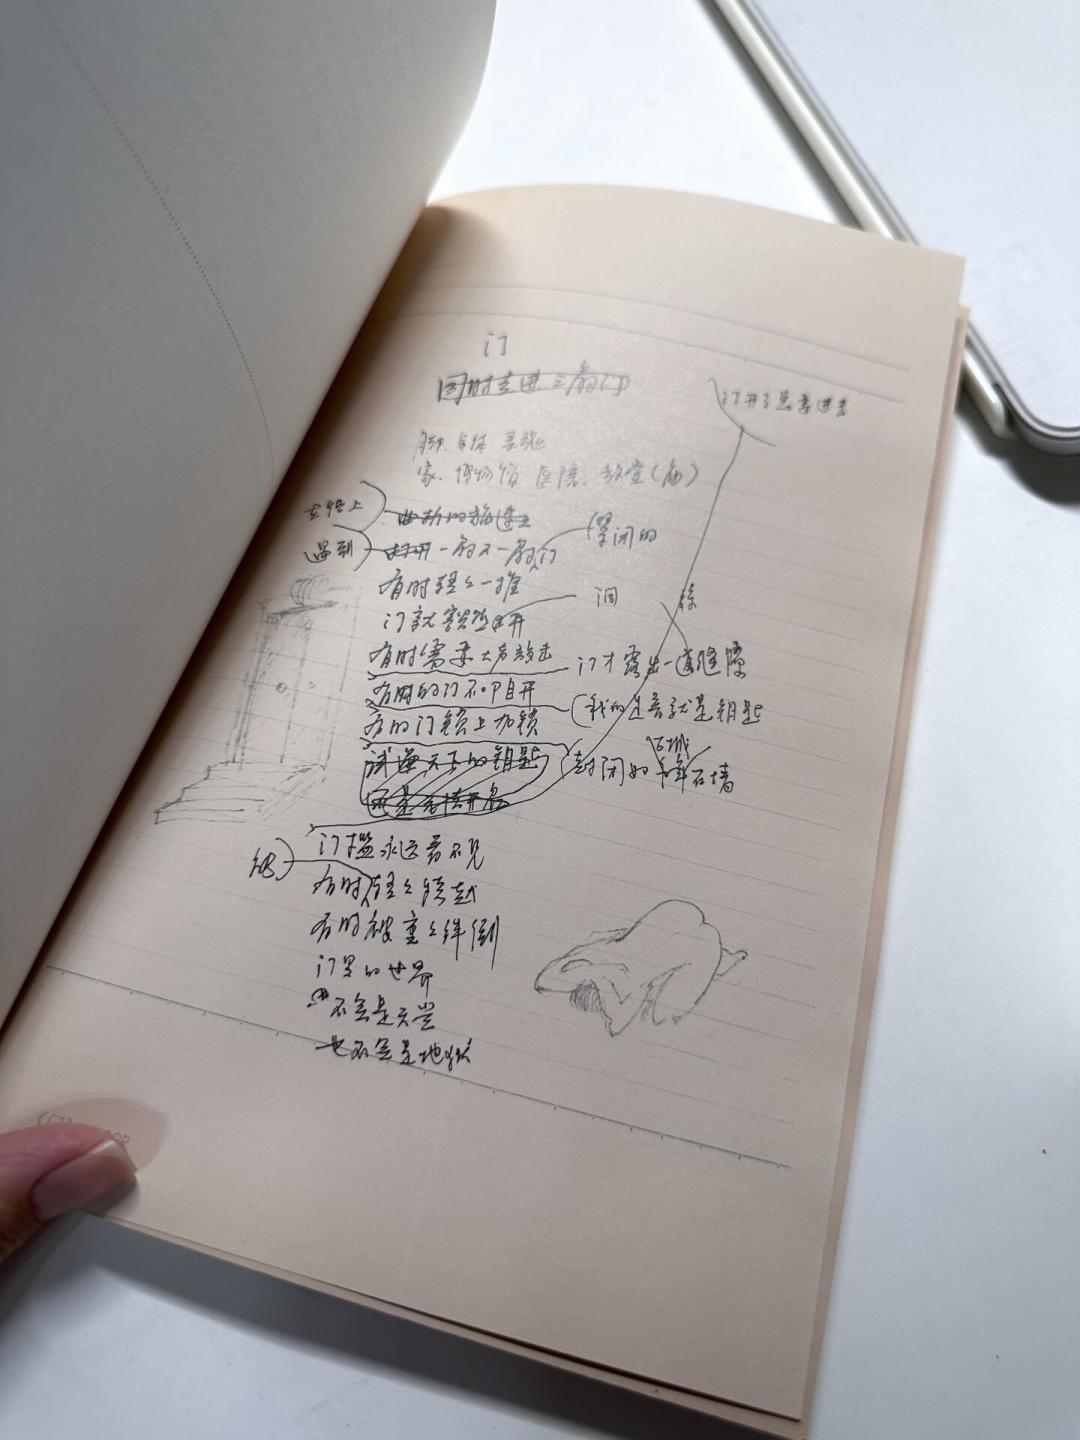 门
同时走进三扇门
门开了总要进去
脚、身体、灵魂
家、博物馆、医院、教堂(庙)
在路上
遇到
打开一扇又一扇门
紧闭的
有时轻轻一推
门就豁然洞开
洞
有时需要大声敲击
门才露出一道缝隙
有时的门不叩自开
(我的足音就是钥匙
有的门锁上加锁
试遍天下的钥匙
封闭如石墙
门槛永远看不见
有时轻轻跨越
有时被重重绊倒
门里的世界
不会是天堂
也不会是地狱